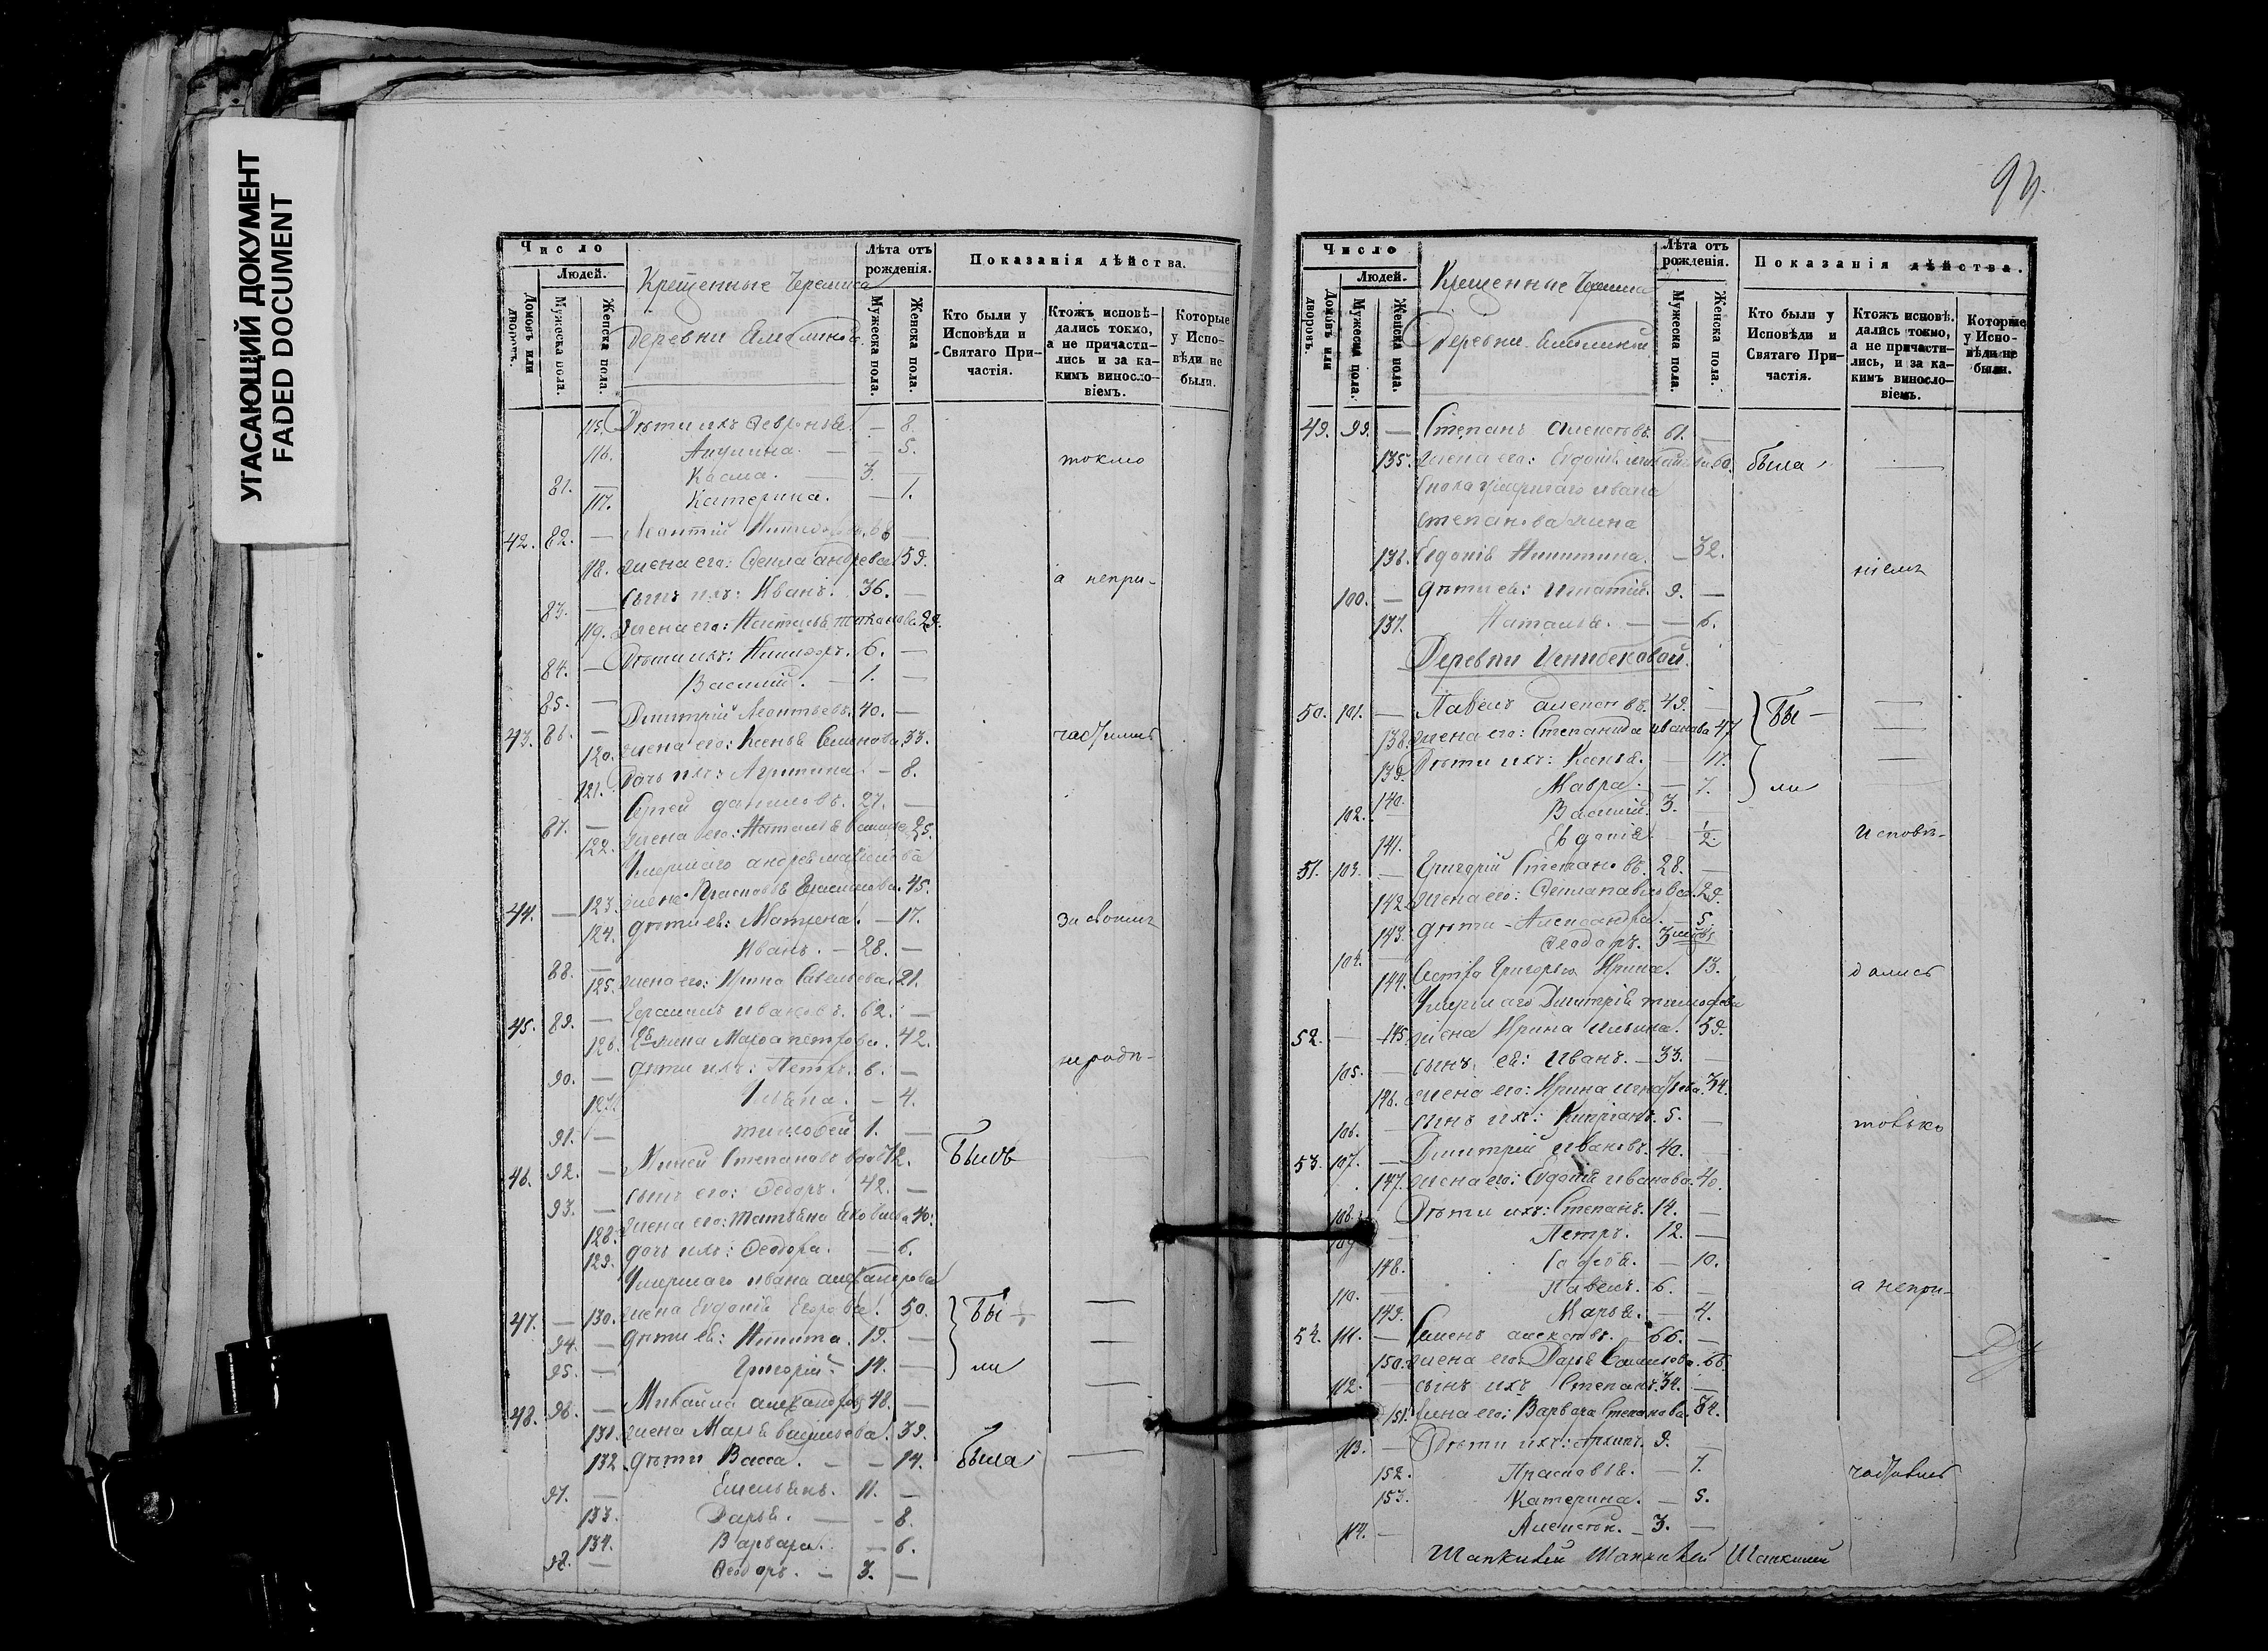 УГАСАЮЩИЙ ДОКУМЕНТ
FADED DOCUMENT
Число
Людей.
Домовъ или дворовъ.
Мужеска пола.
Женска пола.
Крещенные Черемиса
Деревни
Лѣта отъ рожденія.
Мужеска пола.
Женска пола.
Показанія дѣйства.
Кто были у Исповѣди и Святаго Причастія.
Ктожъ исповѣдались токмо, а не причастились и за какимъ винословіемъ.
Которые у Исповѣди не были.
115. Дѣти ихъ Февронья. — 8.
116. Акулина. — 5. токмо
81. — Косма. — 3. —
117. Катерина. — 1.
42. 82. — Леонтій 66 —
118. жена его: Фекла Андреева 59.
83. — сынъ ихъ: Иванъ. 36. — а непри-
119. жена его: Наталья 29.
84. — Дѣти ихъ: Никифоръ. 6. —
85. — Василій. — 1. —
43. 86. — Дмитрій Леонтьевъ. 40. —
120. жена его: Ксенья Семенова 33. частились
121. Дочь ихъ: Акулина. — 8.
87. — Сергей Даниловъ. 27. —
122. жена его: Наталья 25.
Умершаго Андрея
44. — 123. жена Прасковья Герасимова. 45.
124. дѣти ея: Матрена. — 17. за своимъ
88. — Иванъ. — 28. —
125. жена его: Ирина Савельева 21.
45. 89. — Герасимъ Ивановъ. 62. —
126. жена Марфа Петрова. 42.
90. — дѣти ихъ: Петръ. 6. — неради-
127. Ульяна. — 4.
91. — Тимофей 1. —
46. 92. — Миней Степановъ вдовъ 72. Былъ —
93. — сынъ его: Федоръ. 42. —
128. жена его: Татьяна Яковлева 40.
129. дочь ихъ: Феодора. — 6.
Умершаго Ивана Александрова
47. — 130. жена Евдокія Егорова. 50. Бы —
94. — дѣти ея: Никита. 19. — —
95. — Григорій. 14. — ли
48. 96. — Михайла Александровъ 48. — —
131. жена Марья Васильева. 39.
132. дѣти Васса. — — 14. была —
97. — Емельянъ. 11. —
133. Дарья. — — 8.
134. Варвара. — 6.
98. — Феодоръ. — 3. —
Число
Людей.
Домовъ или дворовъ.
Мужеска пола.
Женска пола.
Крещенные Черемиса
Деревни
Лѣта отъ рожденія.
Мужеска пола.
Женска пола.
Показанія дѣйства.
Кто были у Исповѣди и Святаго Причастія.
Ктожъ исповѣдались токмо, а не причастились, и за какимъ винословіемъ.
Которые у Исповѣди не были.
49. 99. — Степанъ Алексѣевъ. 61. —
135. жена его: Евдокія 60. была —
Сноха умершаго Ивана
Степанова жена
136. Евдокія Никитина. — 32. ніемъ
100. — дѣти ея: Игнатій. 9. —
137. Наталья. — — 6.
Деревни Ценибековой.
50. 101. — Павелъ Алексѣевъ. 49. — Бы — —
138. жена его: Степанида Иванова 47 —
139. Дѣти ихъ: Ксенья. — 11. —
140. Мавра. — 7. ли
102. — Василій. 3.
141. Евдокія — 1/2 Исповѣ-
51. 103. — Григорій Степановъ. 28. —
142. жена его: Фекла Павлова. 29.
143. дѣти — Александра. — 5.
104. — Феодоръ. 3
144. Сестра Григорья Ирина. 13. дались
Умершаго Дмитрія Тимофеева
52. — 145. жена Ирина Ильина. 59.
105. — сынъ ея: Иванъ. — 33. —
146. жена его: Ирина Игнатьева. 34.
106. — сынъ ихъ: Кипріанъ. 5. — только
53. 107. — Дмитрій Ивановъ. 40. —
147. жена его: Евдокія Иванова. 40.
108. — Дѣти ихъ: Степанъ. 14. —
109 — Петръ. 12. —
148. Софья. — 10.
110. — Павелъ. 6. — а непри-
149. Марья. — 4.
54. 111. — Семенъ Алексѣевъ. 66. —
150. жена его: Дарья 66.
112. — сынъ ихъ Степанъ. 34. —
151. жена его: Варвара Степанова. 34.
113. — Дѣти ихъ: Архипъ. 9. —
152. Прасковья. — 7. частились
153. Катерина. — 5.
114. — Алексѣй. — 3. —